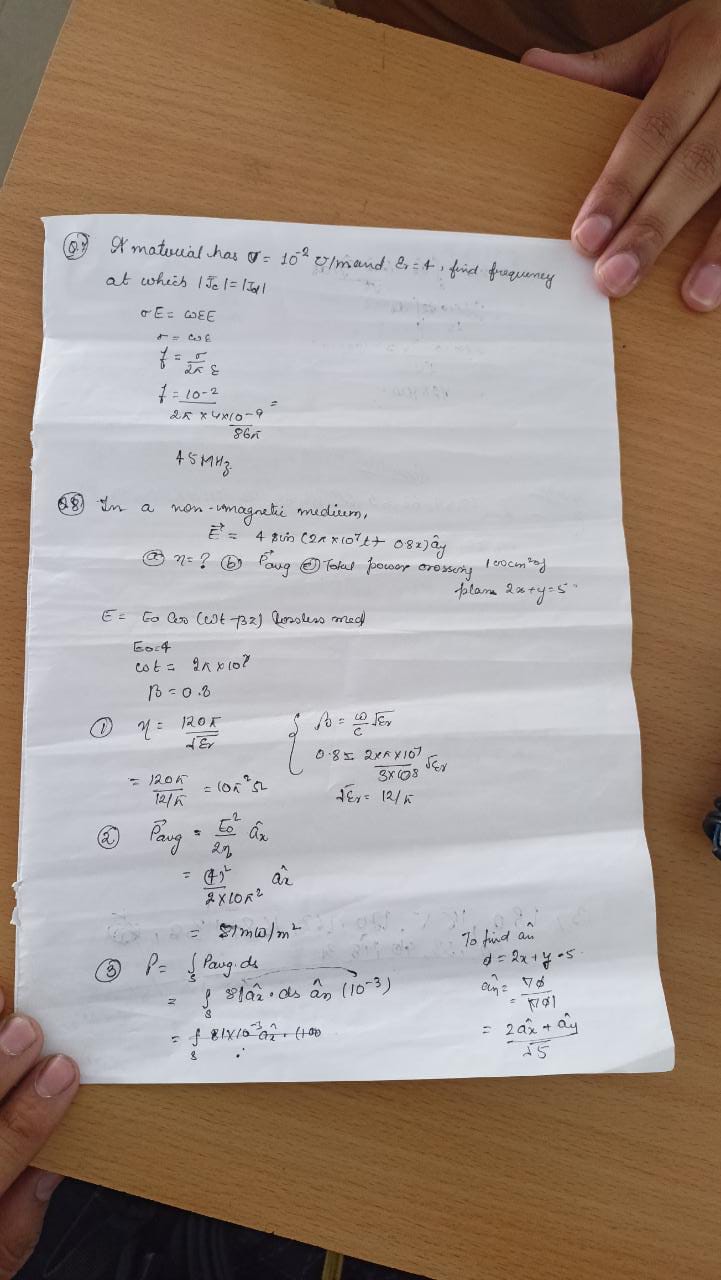 Q.7 A material has σ = 10⁻² ℧/m and εr = 4, find frequency
at which |Jc| = |Jd|
σE = ωεE
σ = ωε
f = σ/2πε
f = 10-2 / (2π × 4 × 10-9/36π) =
45 MHz
Q8 In a non-magnetic medium,
E⃗ = 4 sin (2π × 10⁷t + 0.8x) ây
(a) η = ? (b) P⃗avg (c) Total power crossing 100cm² of
plane 2x+y=5
E = E0 cos (ωt - βz) lossless med
E0=4
ωt = 2π × 10⁷
β = 0.8
① η = 120π/√εr { β = ω/c √εr
0.8 = 2×π×10⁷/3×10⁸ √εr
= 120π/12/π = 10π² Ω √εr = 12/π
② P⃗avg = E0²/2η âx
= (4)²/2×10π² âx
= 81mω/m²
③ P = ∫s Pavg.ds
= ∫s 81âx . ds ân (10⁻³)
= ∫s 81×10⁻³ âx . (100
To find ân
ϕ = 2x + y - 5
ân = ∇ϕ/|∇ϕ|
= 2âx + ây/√5